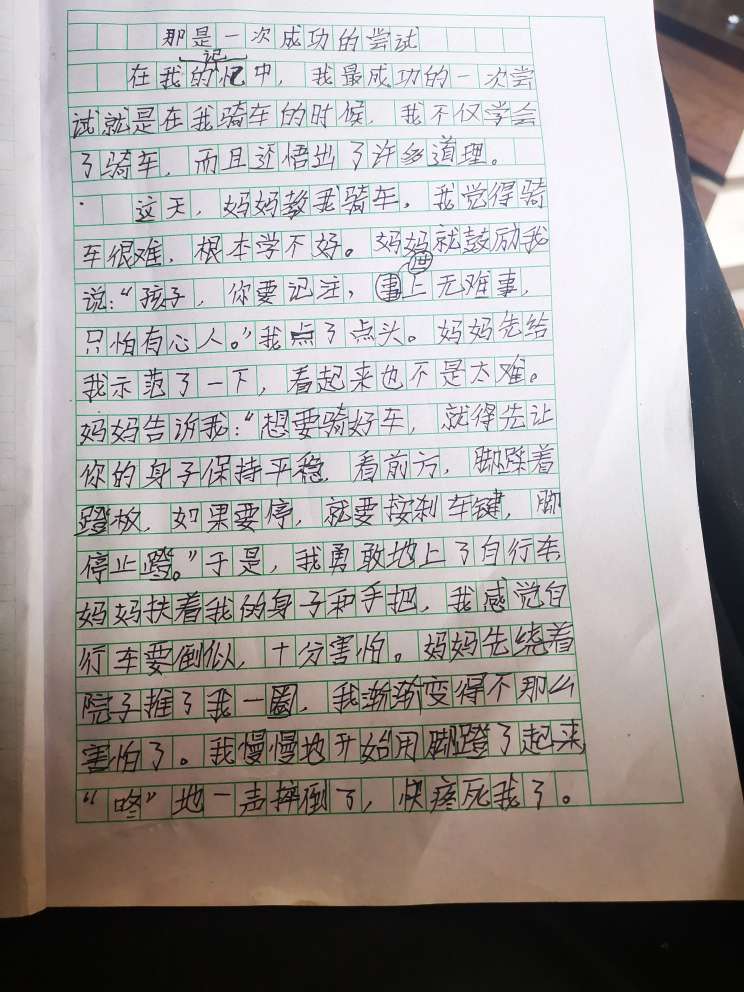 那是一次成功的尝试
在我的记忆中，我最成功的一次尝
试就是在我骑车的时候，我不仅学会
了骑车，而且还悟出了许多道理。
这天，妈妈教我骑车，我觉得骑
车很难，根本学不好。妈妈就鼓励我
说：“孩子，你要记注，世上无难事，
只怕有心人。”我点了点头。妈妈先给
我示范了一下，看起来也不是太难。
妈妈告诉我：“想要骑好车，就得先让
你的身子保持平稳，看前方，脚踩着
蹬板，如果要停，就要按刹车键，脚
停止蹬。”于是，我勇敢地上了自行车
妈妈扶着我的身子和手把，我感觉自
行车要倒似，十分害怕。妈妈先绕着
院子推了我一圈，我渐渐变得不那么
害怕了。我慢慢地开始用脚蹬了起来
“咚”地一声摔倒了，快疼死我了。